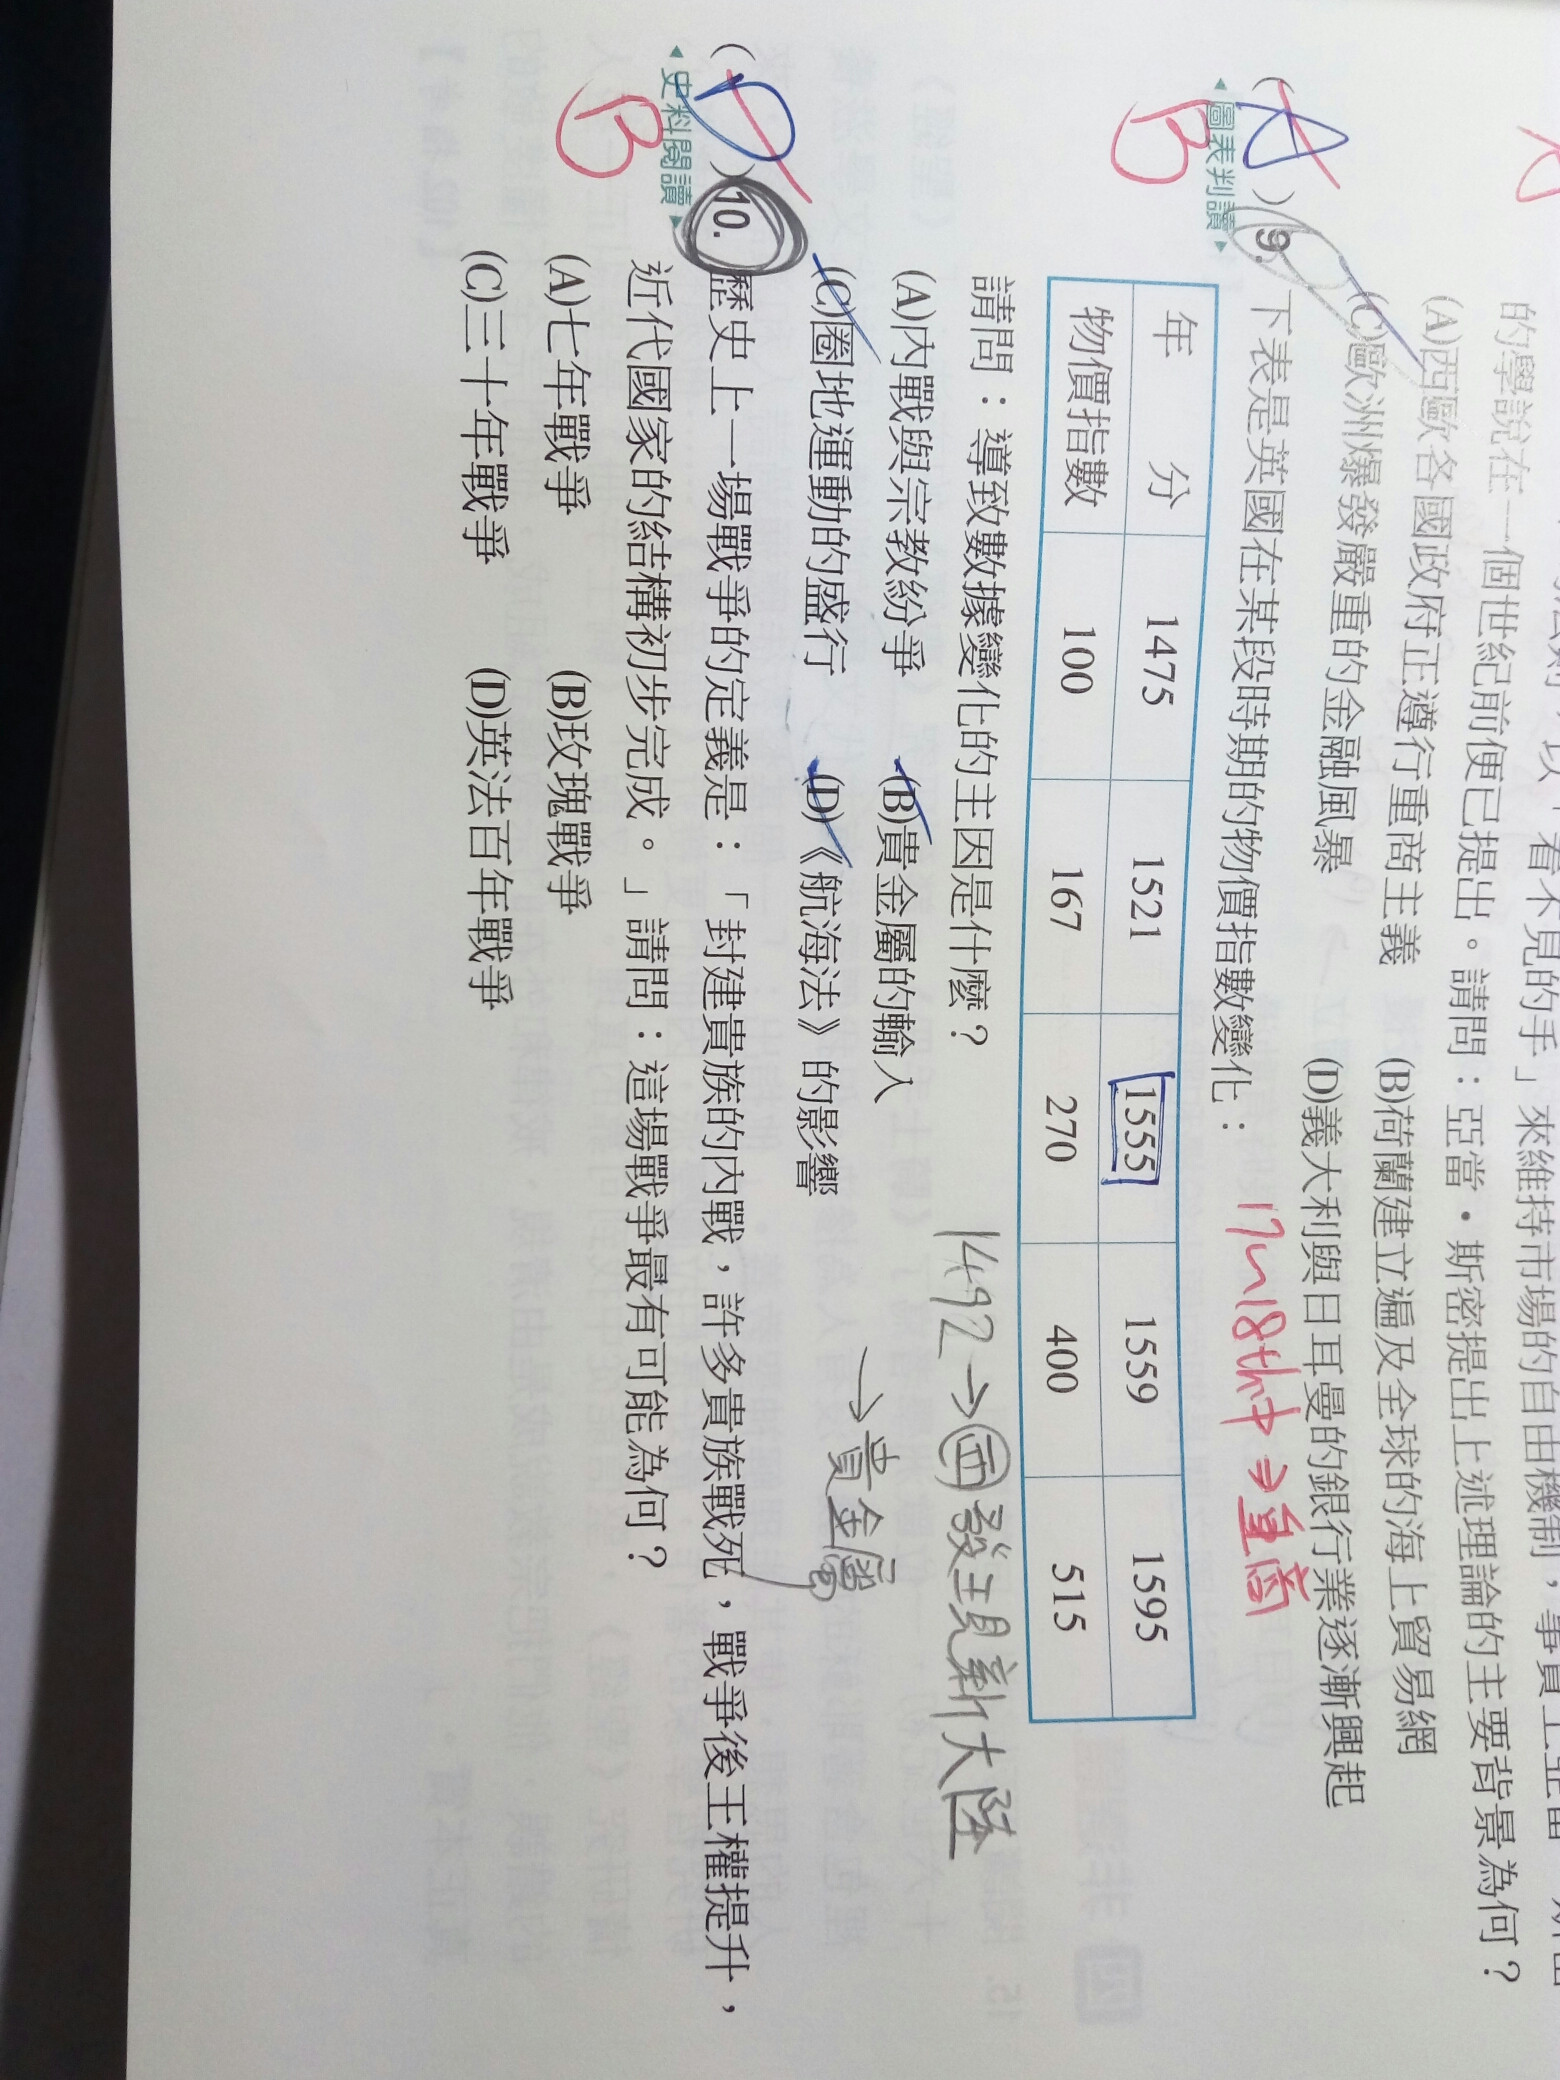 看不見的手」來維持市場的自由機制，事實上亞當
的學說在一個世紀前便已提出。請問：亞當・斯密提出上述理論的主要背景為何？
(A)西歐各國政府正遵行重商主義 (B)荷蘭建立遍及全球的海上貿易網
(C)歐洲爆發嚴重的金融風暴 (D)義大利與日耳曼的銀行業逐漸興起
(A) 9. 下表是英國在某段時期的物價指數變化： 17~18th中⇒重商
圖表判讀
B
年 分 1475 1521 1555 1559 1595
物價指數 100 167 270 400 515
請問：導致數據變化的主因是什麼？ 1492→西發現新大陸
(A)內戰與宗教紛爭 (B)貴金屬的輸入 →貴金屬
(C)圈地運動的盛行 (D)《航海法》的影響
(D) 10. 歷史上一場戰爭的定義是：「封建貴族的內戰，許多貴族戰死，戰爭後王權提升，
史料閱讀
B
近代國家的結構初步完成。」請問：這場戰爭最有可能為何？
(A)七年戰爭 (B)玫瑰戰爭
(C)三十年戰爭 (D)英法百年戰爭